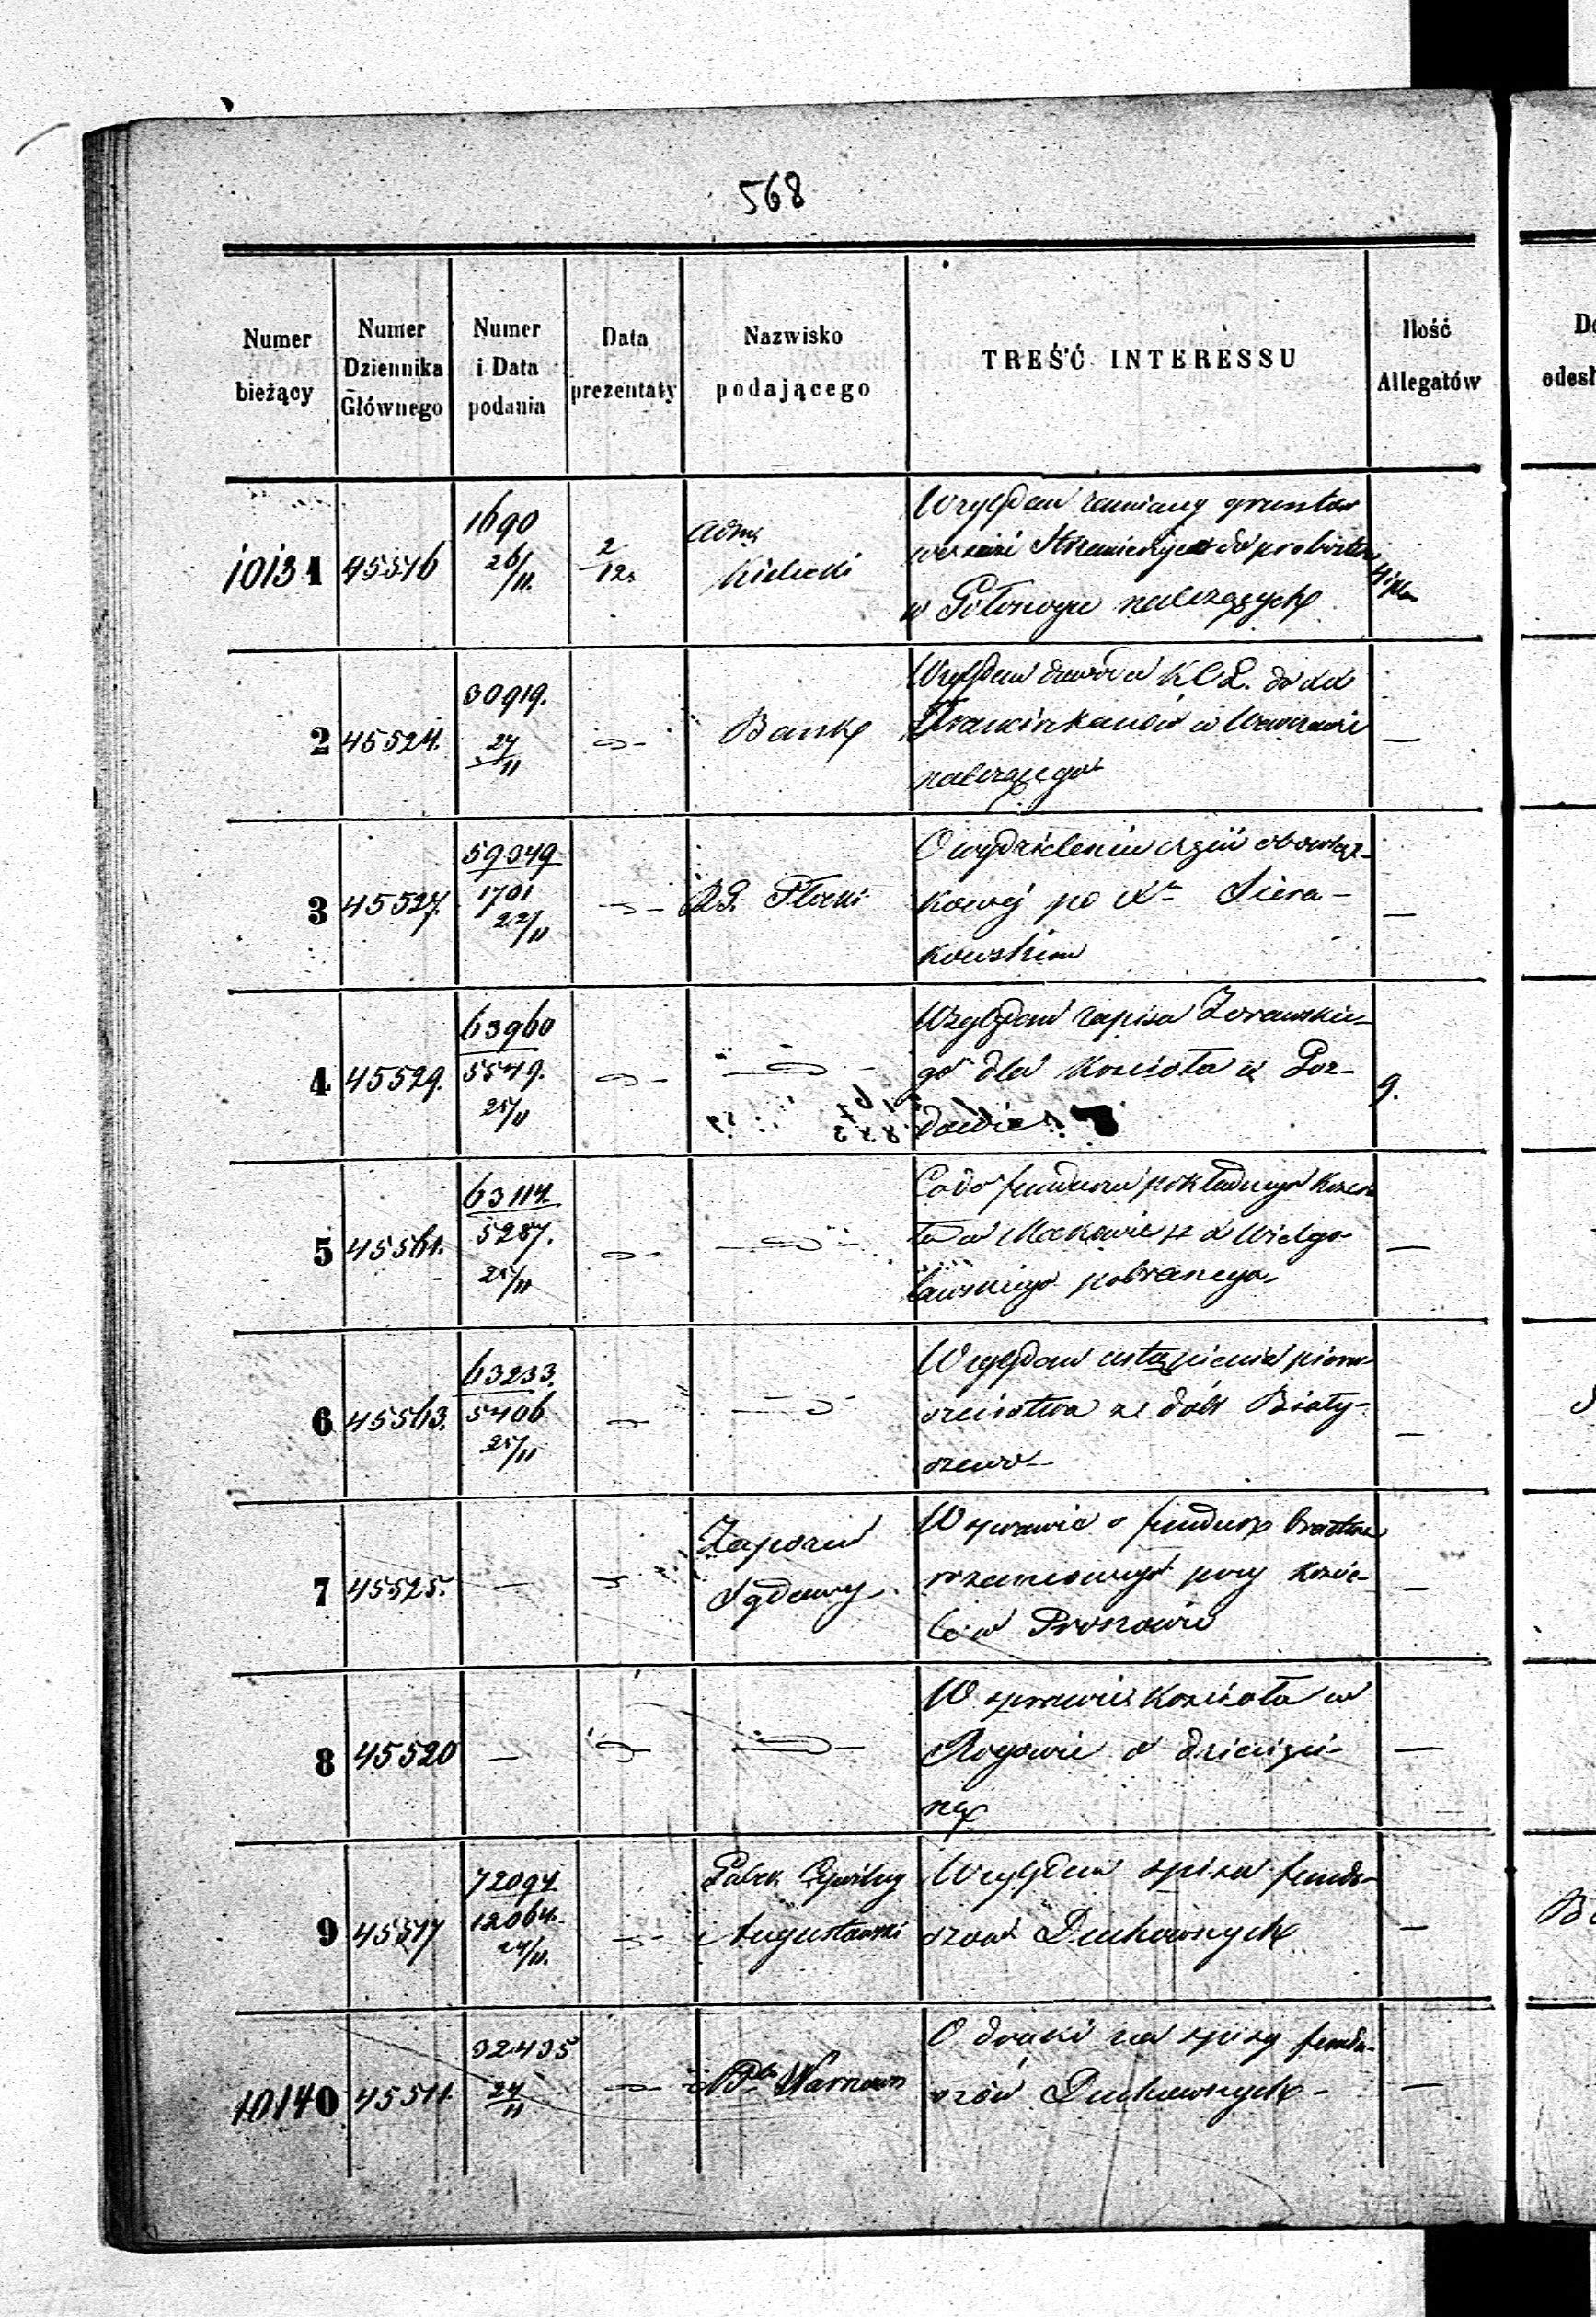 568
Numer bieżący | Numer Dziennika Głównego | Numer i Data podania | Data prezentaty | Nazwisko podającego | TREŚĆ INTERESSU | Ilość Allegatów
10131 | 45516 | 1690 26/11. | 2/12. | Adm. Kielecki | Względem zamiany gruntów
we wsi do probostwa
w Gołonogu należących
2 | 45524. | 30919. 24/11 | Bank | Względem dowodu K.C.L. do XX
Franciszkanów w Warszawie —
należącego
3 | 45527. | 59349 1701 22/11 | R.G. Płocki | O wydzieleniu części obowiąz-
kowej po X. Siera- —
kowskim
4 | 45529. | 63960 5549. 25/11 | Względem zapisu Żorawskie-
go dla Kościoła w Goz- 9.
dowie
5 | 45561. | 63114. 5287. 25/11 | Co do funduszu pokładnego Kościo
ła w Makowie z X Wielgo- —
ławskiego pobranego
6 | 45563. | 63233. 5406 25/11 | Względem ustąpienia pierw-
szeństwa z dóbr Biały- —
szewo
7 | 45525. | — | Zapozew Sądowy | W sprawie o fundusz bractwa
rożańcowego przy Koście- —
le w Proszowie
8 | 45520 | — | W sprawie Kościoła w
Rogowie o dziesięci- —
nę
9 | 45517 | 72094 12064. 24/11. | Cywilny Augustowski | Względem spisu fundu-
szów Duchownych —
10140 | 45511. | 32435 24/11 | Warszaws | O druki na spisy fundu-
szów Duchownych —